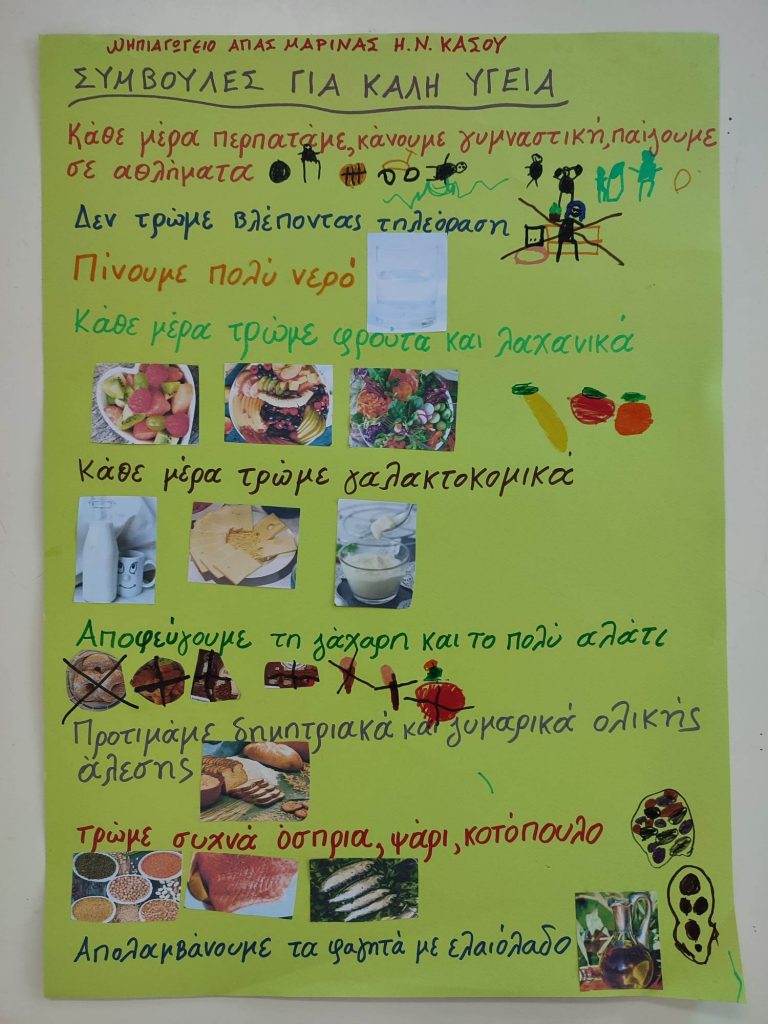 ΝΗΠΙΑΓΩΓΕΙΟ ΑΓΙΑΣ ΜΑΡΙΝΑΣ Η.Ν. ΚΑΣΟΥ
ΣΥΜΒΟΥΛΕΣ ΓΙΑ ΚΑΛΗ ΥΓΕΙΑ
Κάθε μέρα περπατάμε, κάνουμε γυμναστική, παίζουμε
σε αθλήματα
Δεν τρώμε βλέποντας τηλεόραση
Πίνουμε πολύ νερό
Κάθε μέρα τρώμε φρούτα και λαχανικά
Κάθε μέρα τρώμε γαλακτοκομικά
Αποφεύγουμε τη ζάχαρη και το πολύ αλάτι
Προτιμάμε δημητριακά και ζυμαρικά ολικής
άλεσης
τρώμε συχνά όσπρια, ψάρι, κοτόπουλο
Απολαμβάνουμε τα φαγητά με ελαιόλαδο